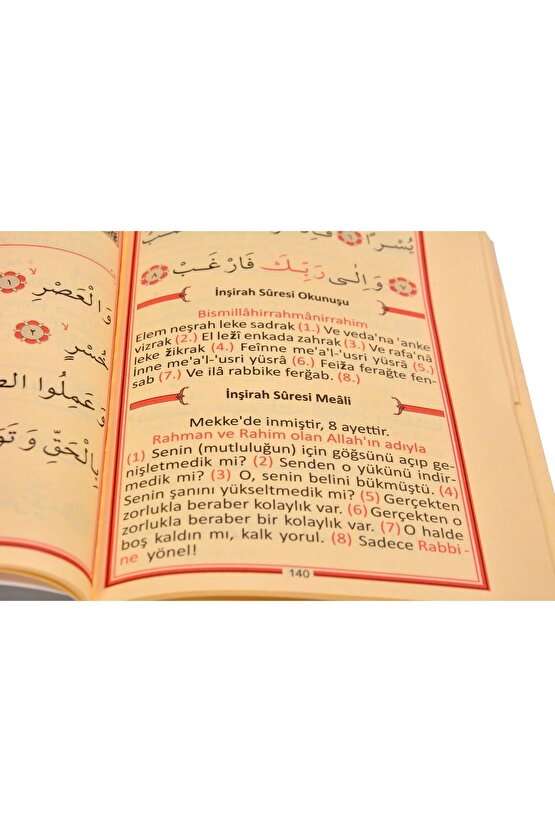 يُسْرًا
وَاِلٰى رَبِّكَ فَارْغَبْ ٨
٧
İnşirah Sûresi Okunuşu
Bismillâhirrahmânirrahim
Elem neşrah leke sadrak (1.) Ve veda'na 'anke
vizrak (2.) El leżî enkada zahrak (3.) Ve rafa'nâ
leke žikrak (4.) Feînne me'a'l-'usri yüsrâ (5.)
İnne me'a'l-'usri yüsrâ (6.) Feiža ferağte fen-
sab (7.) Ve ilâ rabbike ferğab. (8.)
İnşirah Sûresi Meâli
Mekke'de inmiştir, 8 ayettir.
Rahman ve Rahim olan Allah'ın adıyla
(1) Senin (mutluluğun) için göğsünü açıp ge-
nişletmedik mi? (2) Senden o yükünü indir-
medik mi? (3) O, senin belini bükmüştü. (4)
Senin şanını yükseltmedik mi? (5) Gerçekten
zorlukla beraber kolaylık var. (6) Gerçekten o
zorlukla beraber bir kolaylık var. (7) O halde
boş kaldın mı, kalk yorul. (8) Sadece Rabbi-
ne yönel!
140
وَالْعَصْرِ ١
خُسْرٍ ٢
وَعَمِلُوا
بِالْحَقِّ